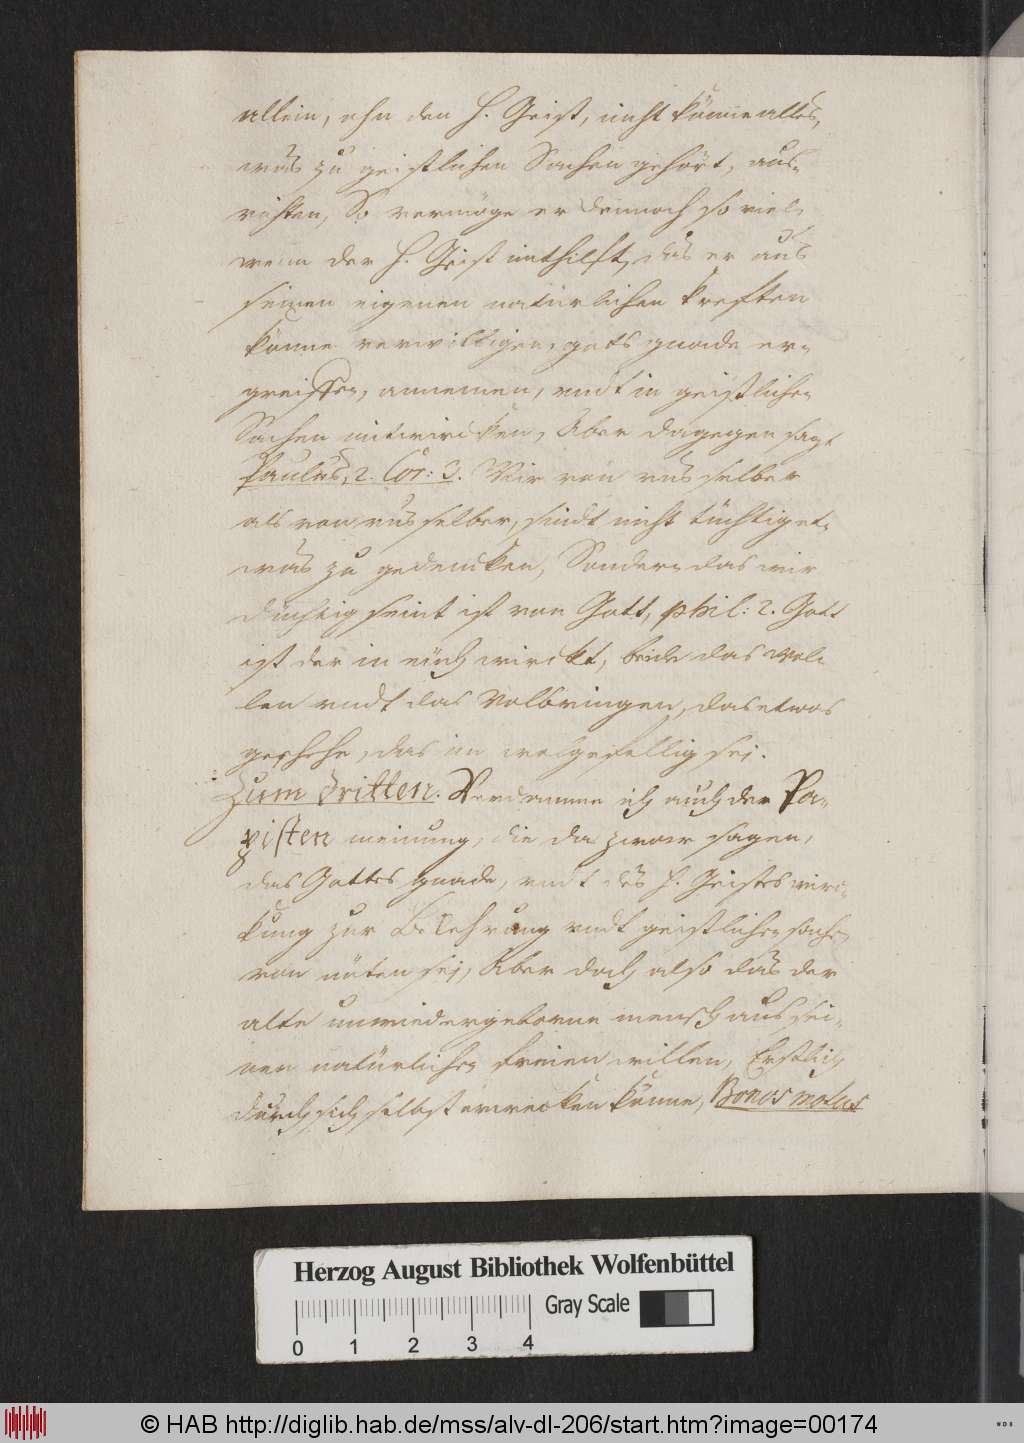 allein, ohn den H. Geist, nicht könne alles,
was zu geistlichen Sachen gehört, aus-
richten, So vermöge er dennoch so viel
wenn der H. Geist mithilft, das er aus
seinen eigenen natürlichen krefften
könne verwilligen, gots gnade er-
greiffen, annemen, vndt in geistlichen
Sachen mitwircken, Aber dagegen sagt
Paulus, 2. Cor: 3. Wir von vns selber
als von vns selber, sindt nicht tüchtig et-
was zu gedencken, Sondern das wir
düchtig seint ist von Gott, phil: 2. Gott
ist der in euch wirckt, beide das wol-
len vndt das Volbringen, das etwas
geschehe, das im wolgefellig sei.
Zum dritten. Verdamme ich auch der Pa-
pisten meinung, die da zwar sagen,
das Gottes gnade, vndt des H. Geistes wirc-
kung zur Bekehrung vndt geistlichen sachen
von nöten sei, Aber doch also das der
alte unwiedergeborne mensch aus sei-
nen natürlichen freien willen, Erstlich
durch sich selbst erwecken könne, Bonos motus
Herzog August Bibliothek Wolfenbüttel
Gray Scale
0 1 2 3 4
© HAB http://diglib.hab.de/mss/alv-dl-206/start.htm?image=00174